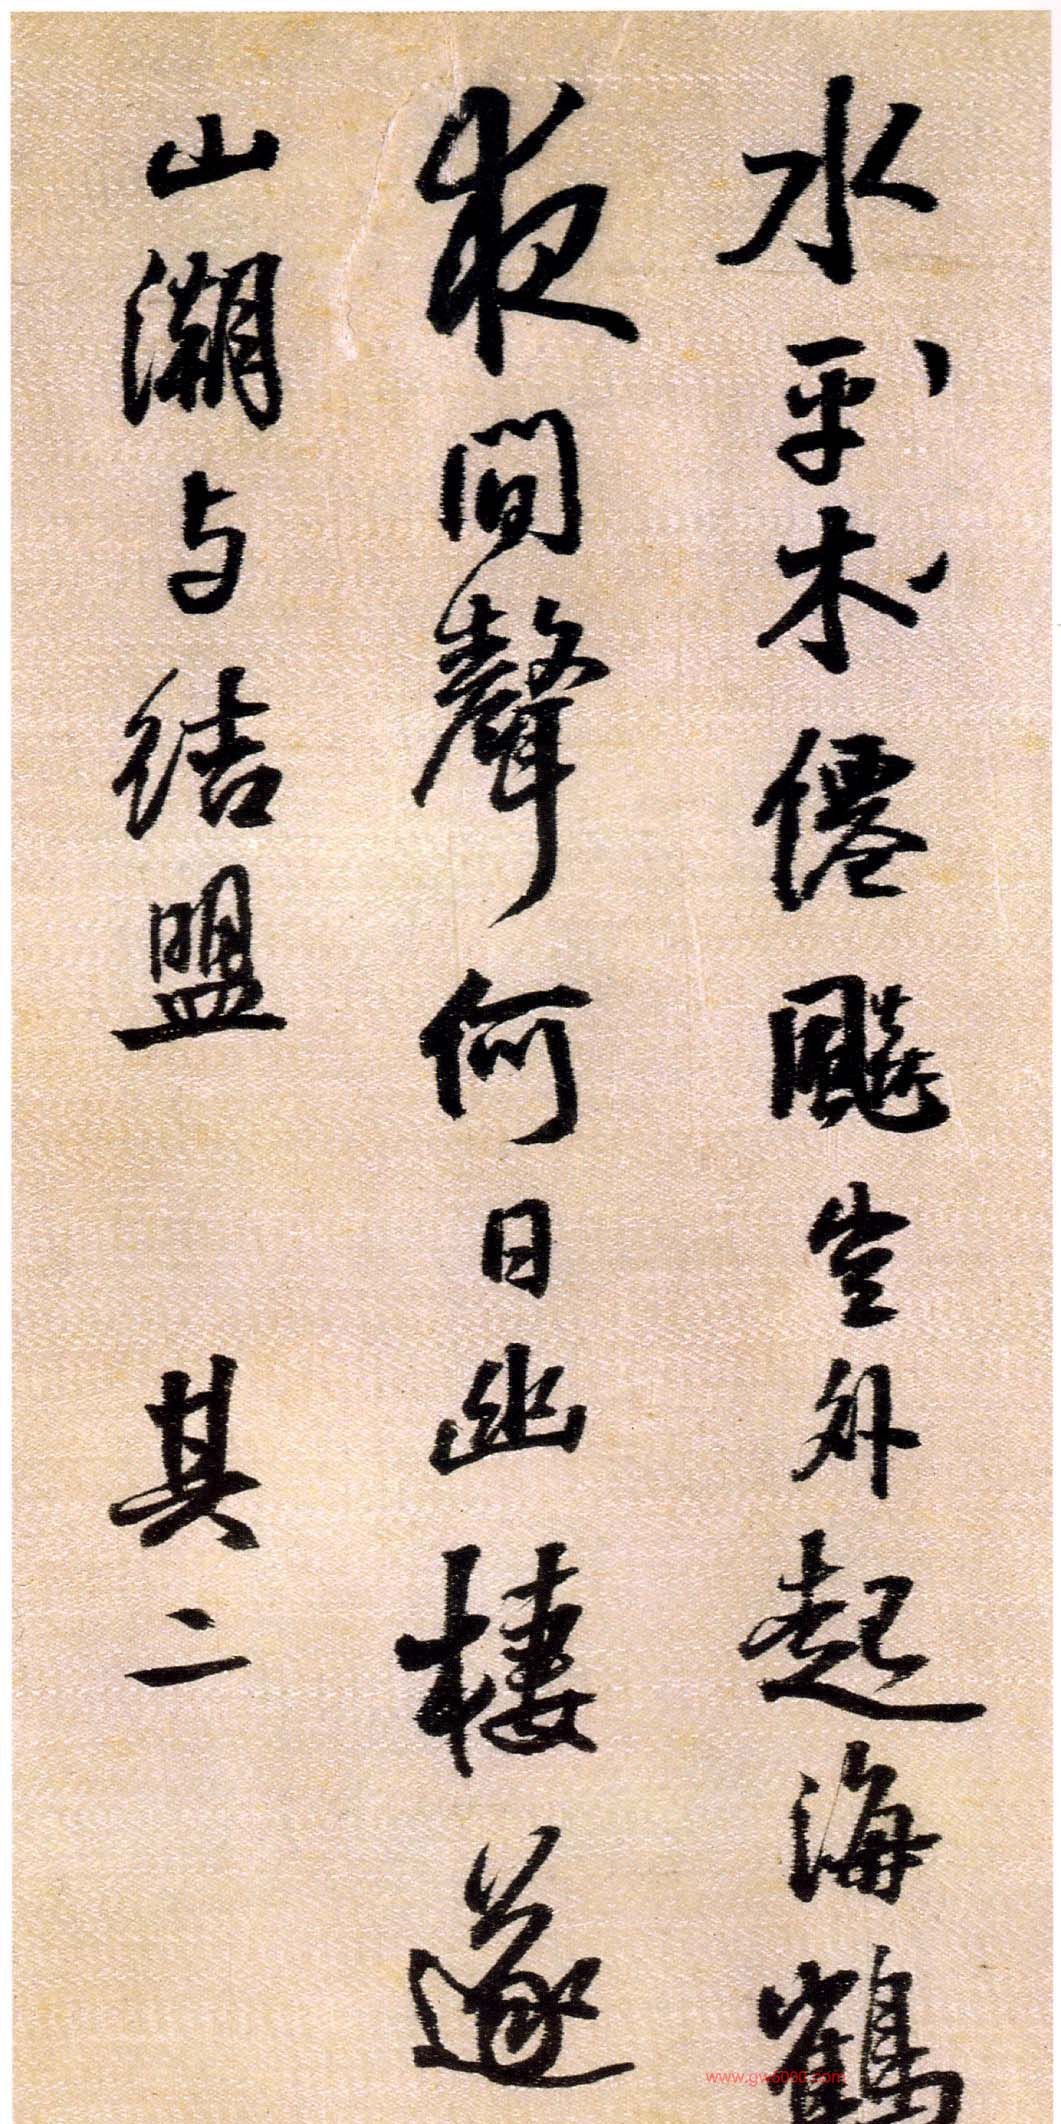 水平木僊飈坐外起海鶴
夜間聲何日幽棲遂
山与結盟 其二
www.gw5000.com